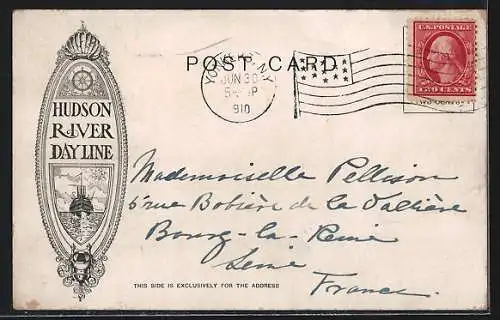 POST CARD
YONKERS, N.Y.
JUN 30
5- P
1910
U.S. POSTAGE
TWO CENTS
TWO CENTS
HUDSON
RIVER
DAY LINE
Mademoiselle Pellison
6 rue Bobière de la Vallière
Bourg-la-Reine
Seine
France
THIS SIDE IS EXCLUSIVELY FOR THE ADDRESS